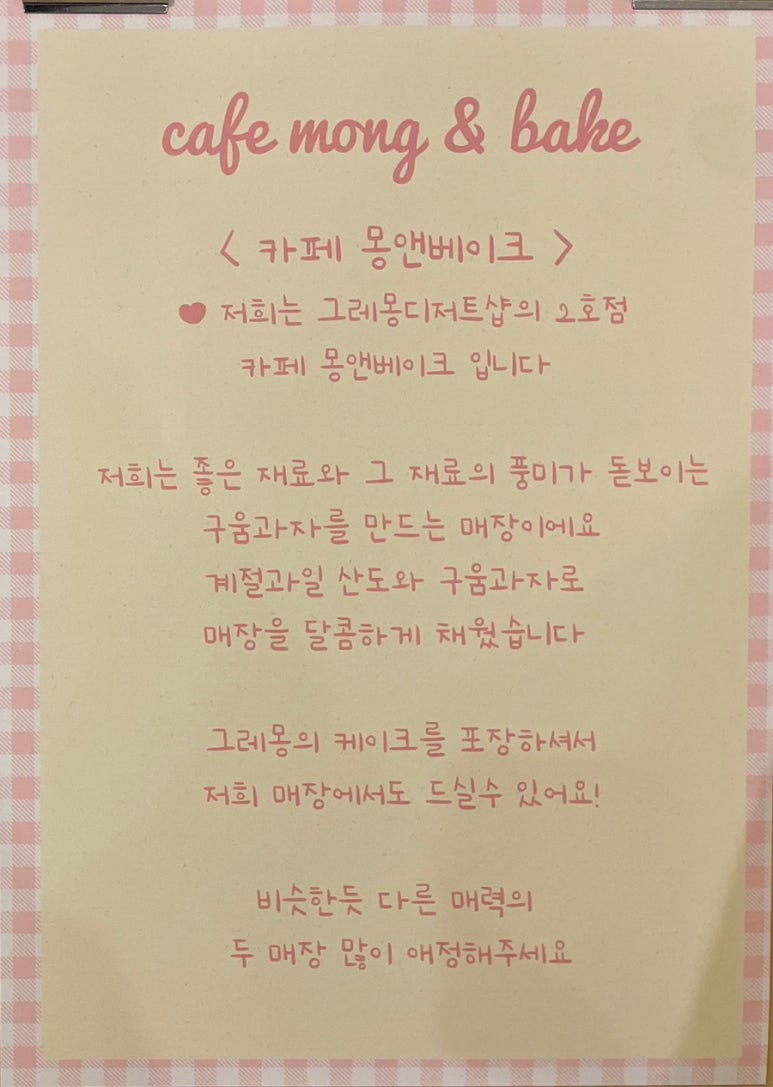 cafe mong & bake
< 카페 몽앤베이크 >
♥ 저희는 그레몽디저트샵의 2호점
카페 몽앤베이크 입니다
저희는 좋은 재료와 그 재료의 풍미가 돋보이는
구움과자를 만드는 매장이에요
계절과일 산도와 구움과자로
매장을 달콤하게 채웠습니다
그레몽의 케이크를 포장하셔서
저희 매장에서도 드실수 있어요!
비슷한듯 다른 매력의
두 매장 많이 애정해주세요